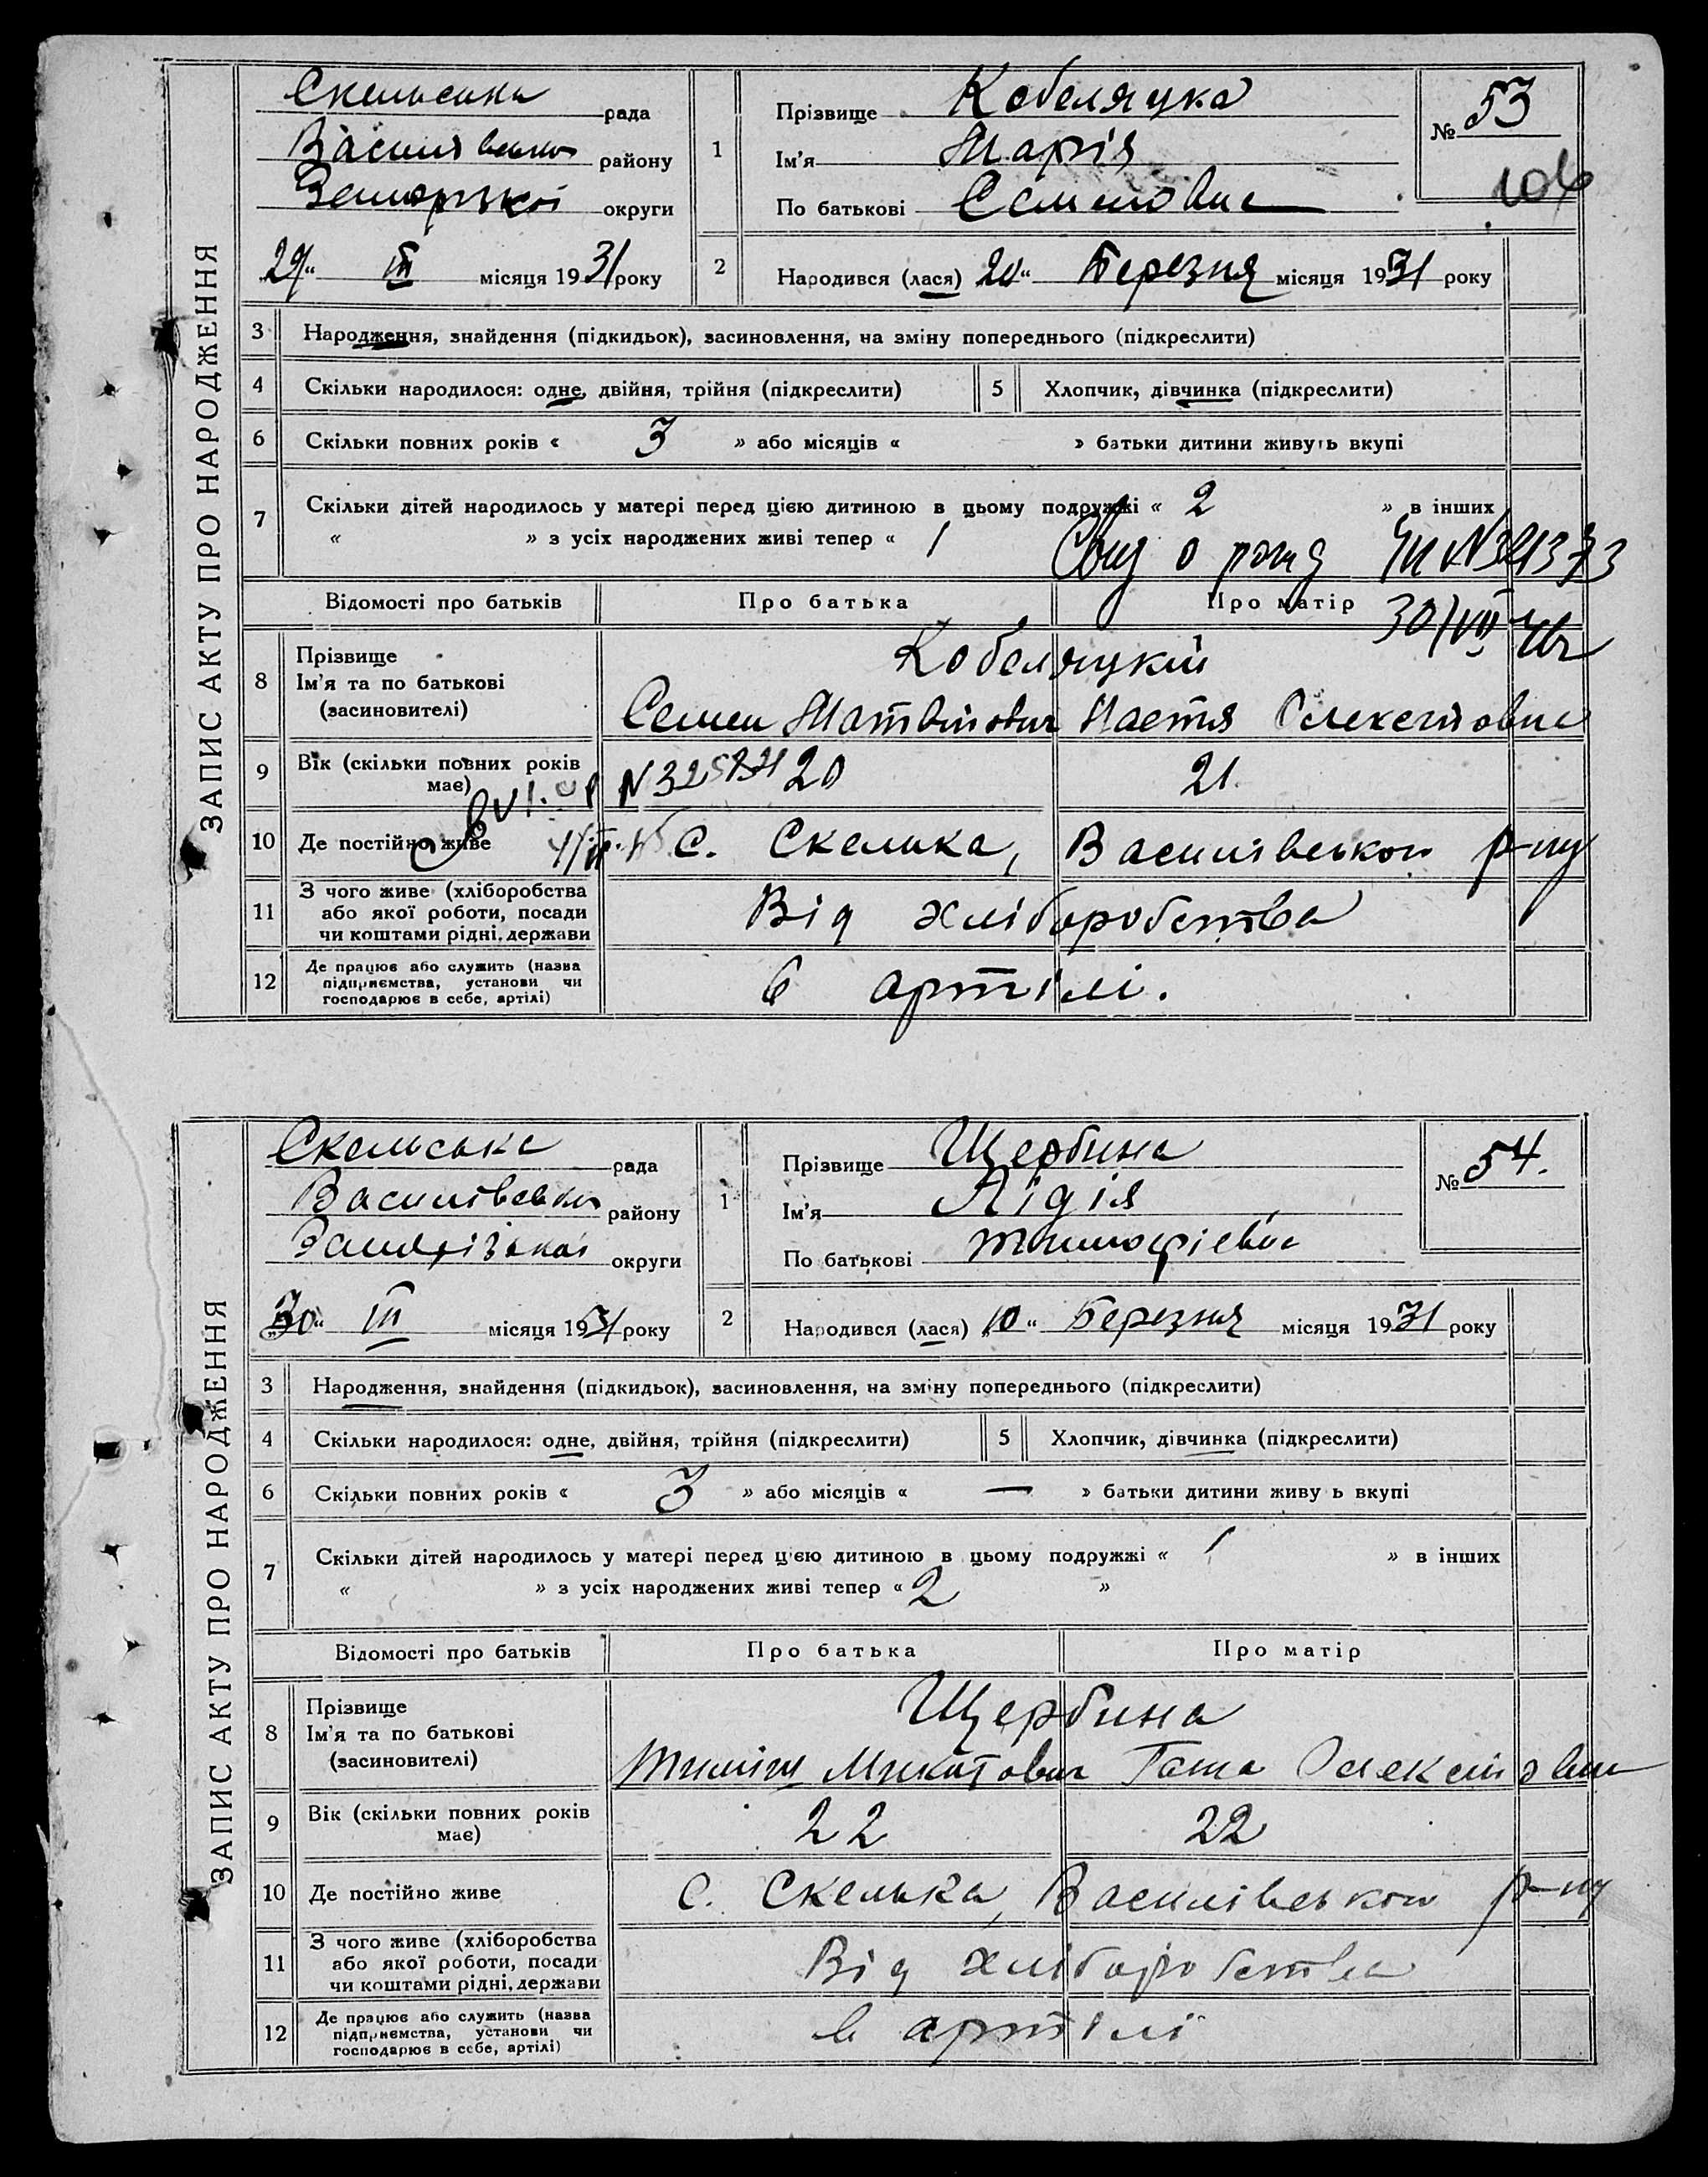 ЗАПИС АКТУ ПРО НАРОДЖЕННЯ
Скельська рада
Василівського району
округи
29 " ІІІ місяця 1931 року
1
Прізвище Кобеляцка
Ім'я Марія
По батькові Семеновна
№ 53
104
2 Народився (лася) 20 " Березня місяця 1931 року
3 Народження, знайдення (підкидьок), засиновлення, на зміну попереднього (підкреслити)
4 Скільки народилося: одне, двійня, трійня (підкреслити) 5 Хлопчик, дівчинка (підкреслити)
6 Скільки повних років « 3 » або місяців « » батьки дитини живуть вкупі
7 Скільки дітей народилось у матері перед цією дитиною в цьому подружжі « 2 » в інших
« » з усіх народжених живі тепер « 1
Відомості про батьків Про батька Про матір
8 Прізвище
Ім'я та по батькові
(засиновителі)
Кобеляцкий
Семен Матвійович Настя Олексіївна
9 Вік (скільки повних років має) 20 21
10 Де постійно живе С. Скелька, Василівського р-ну
11 З чого живе (хліборобства
або якої роботи, посади
чи коштами рідні, держави
Від хліборобства
12 Де працює або служить (назва
підприємства, установи чи
господарює в себе, артілі)
в артілі.
ЗАПИС АКТУ ПРО НАРОДЖЕННЯ
Скельська рада
Василівського району
округи
30 " ІІІ місяця 1931 року
1
Прізвище Щербина
Ім'я Лідія
По батькові Тимофієвна
№ 54.
2 Народився (лася) 10 " Березня місяця 1931 року
3 Народження, знайдення (підкидьок), засиновлення, на зміну попереднього (підкреслити)
4 Скільки народилося: одне, двійня, трійня (підкреслити) 5 Хлопчик, дівчинка (підкреслити)
6 Скільки повних років « 3 » або місяців « — » батьки дитини живу ь вкупі
7 Скільки дітей народилось у матері перед цією дитиною в цьому подружжі « 1 » в інших
« » з усіх народжених живі тепер « 2 »
Відомості про батьків Про батька Про матір
8 Прізвище
Ім'я та по батькові
(засиновителі)
Щербина
Тиміш Микитович
9 Вік (скільки повних років має) 22 22
10 Де постійно живе С. Скелька, Василівського р-ну
11 З чого живе (хліборобства
або якої роботи, посади
чи коштами рідні, держави
Від хліборобства
12 Де працює або служить (назва
підприємства, установи чи
господарює в себе, артілі)
в артілі